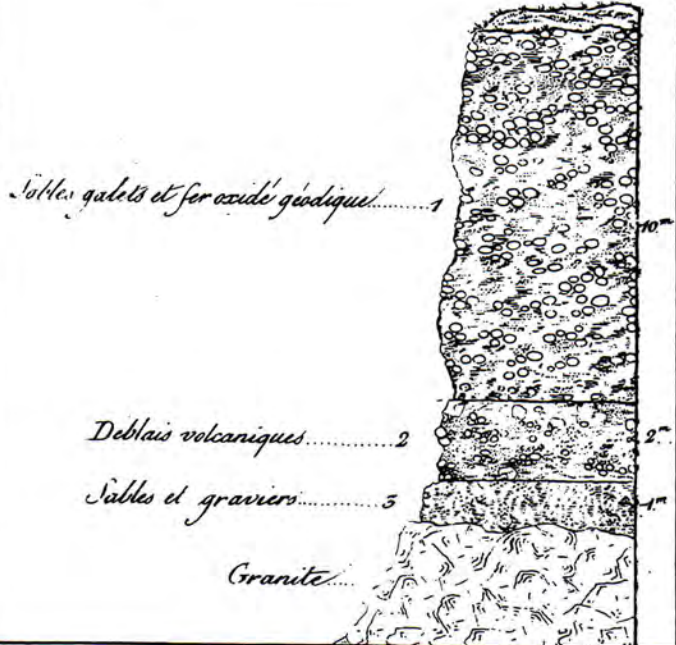 Sables galets et fer oxidé géodique........1
10.m
Deblais volcaniques............2
2.m
Sables et graviers............3
1.m
Granite....